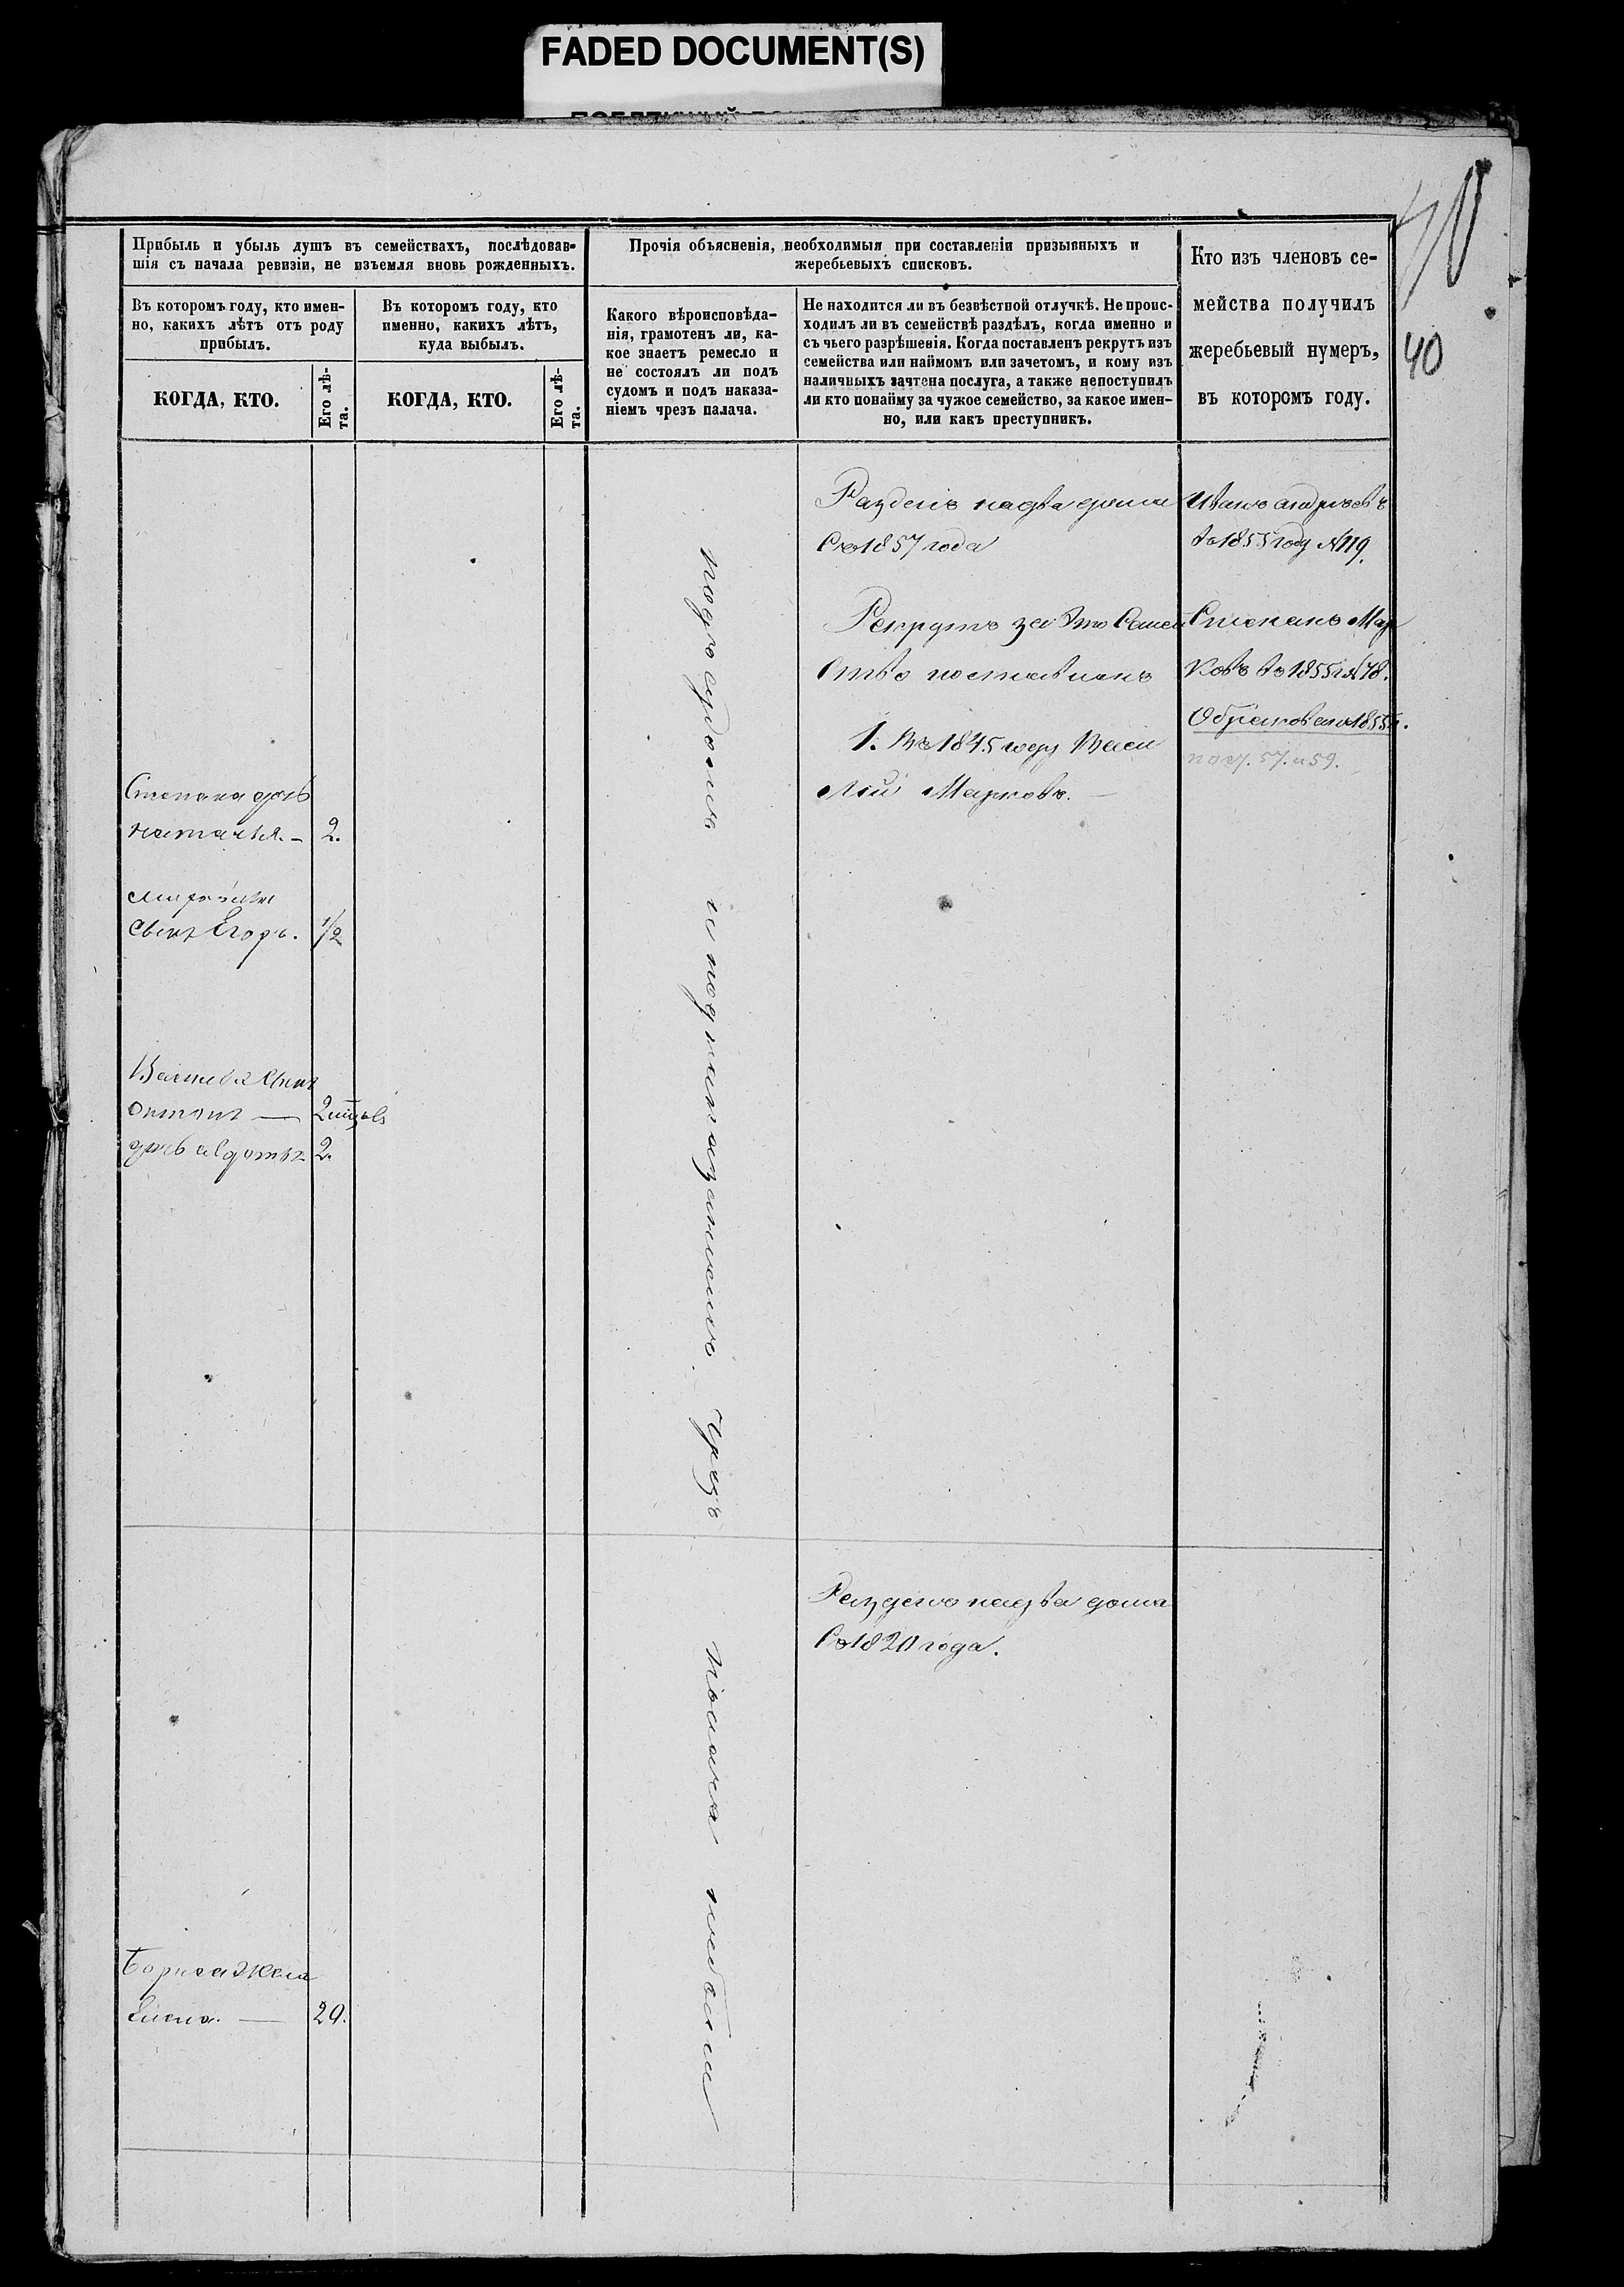 FADED DOCUMENT(S)
40
Прибыль и убыль душъ въ семействахъ, послѣдовав-
шія съ начала ревизіи, не изъемля вновь рожденныхъ.
Прочія объясненія, необходимыя при составленіи призывныхъ и
жеребьевыхъ списковъ.
Кто изъ членовъ се-
мейства получилъ
жеребьевый нумеръ,
въ которомъ году.
40
Въ которомъ году, кто имен-
но, какихъ лѣтъ отъ роду
прибылъ.
Въ которомъ году, кто
именно, какихъ лѣтъ,
куда выбылъ.
Какого вѣроисповѣда-
нія, грамотенъ ли, ка-
кое знаетъ ремесло и
не состоялъ ли подъ
судомъ и подъ наказа-
ніемъ чрезъ палача.
Не находится ли въ безвѣстной отлучкѣ. Не проис-
ходилъ ли въ семействѣ раздѣлъ, когда именно и
съ чьего разрѣшенія. Когда поставленъ рекрутъ изъ
семейства или наймомъ или зачетомъ, и кому изъ
наличныхъ зачтена послуга, а также непоступилъ
ли кто понайму за чужое семейство, за какое имен-
но, или какъ преступникъ.
КОГДА, КТО.
Его лѣ-
та.
КОГДА, КТО.
Его лѣ-
та.
Степана дочь
наталья. 2.
сынъ Егоръ. 1/2
2
дочь авдотья 2.
Бориса жена
Елена. 20.
подъ судомъ и подъ наказаниемъ чрезъ палача небыли
Разделъ на два дома
Съ 1857 года
Рекрутъ за это Семей
ство поставленъ
1. Въ 1845 году Васи
лий Марковъ.
Разделъ на два дома
Съ 1820 года.
Иванъ андреевъ
въ 1855 году №119.
Степанъ Мар
ковъ въ 1855 г №78.
1855 г.
57. и 59.